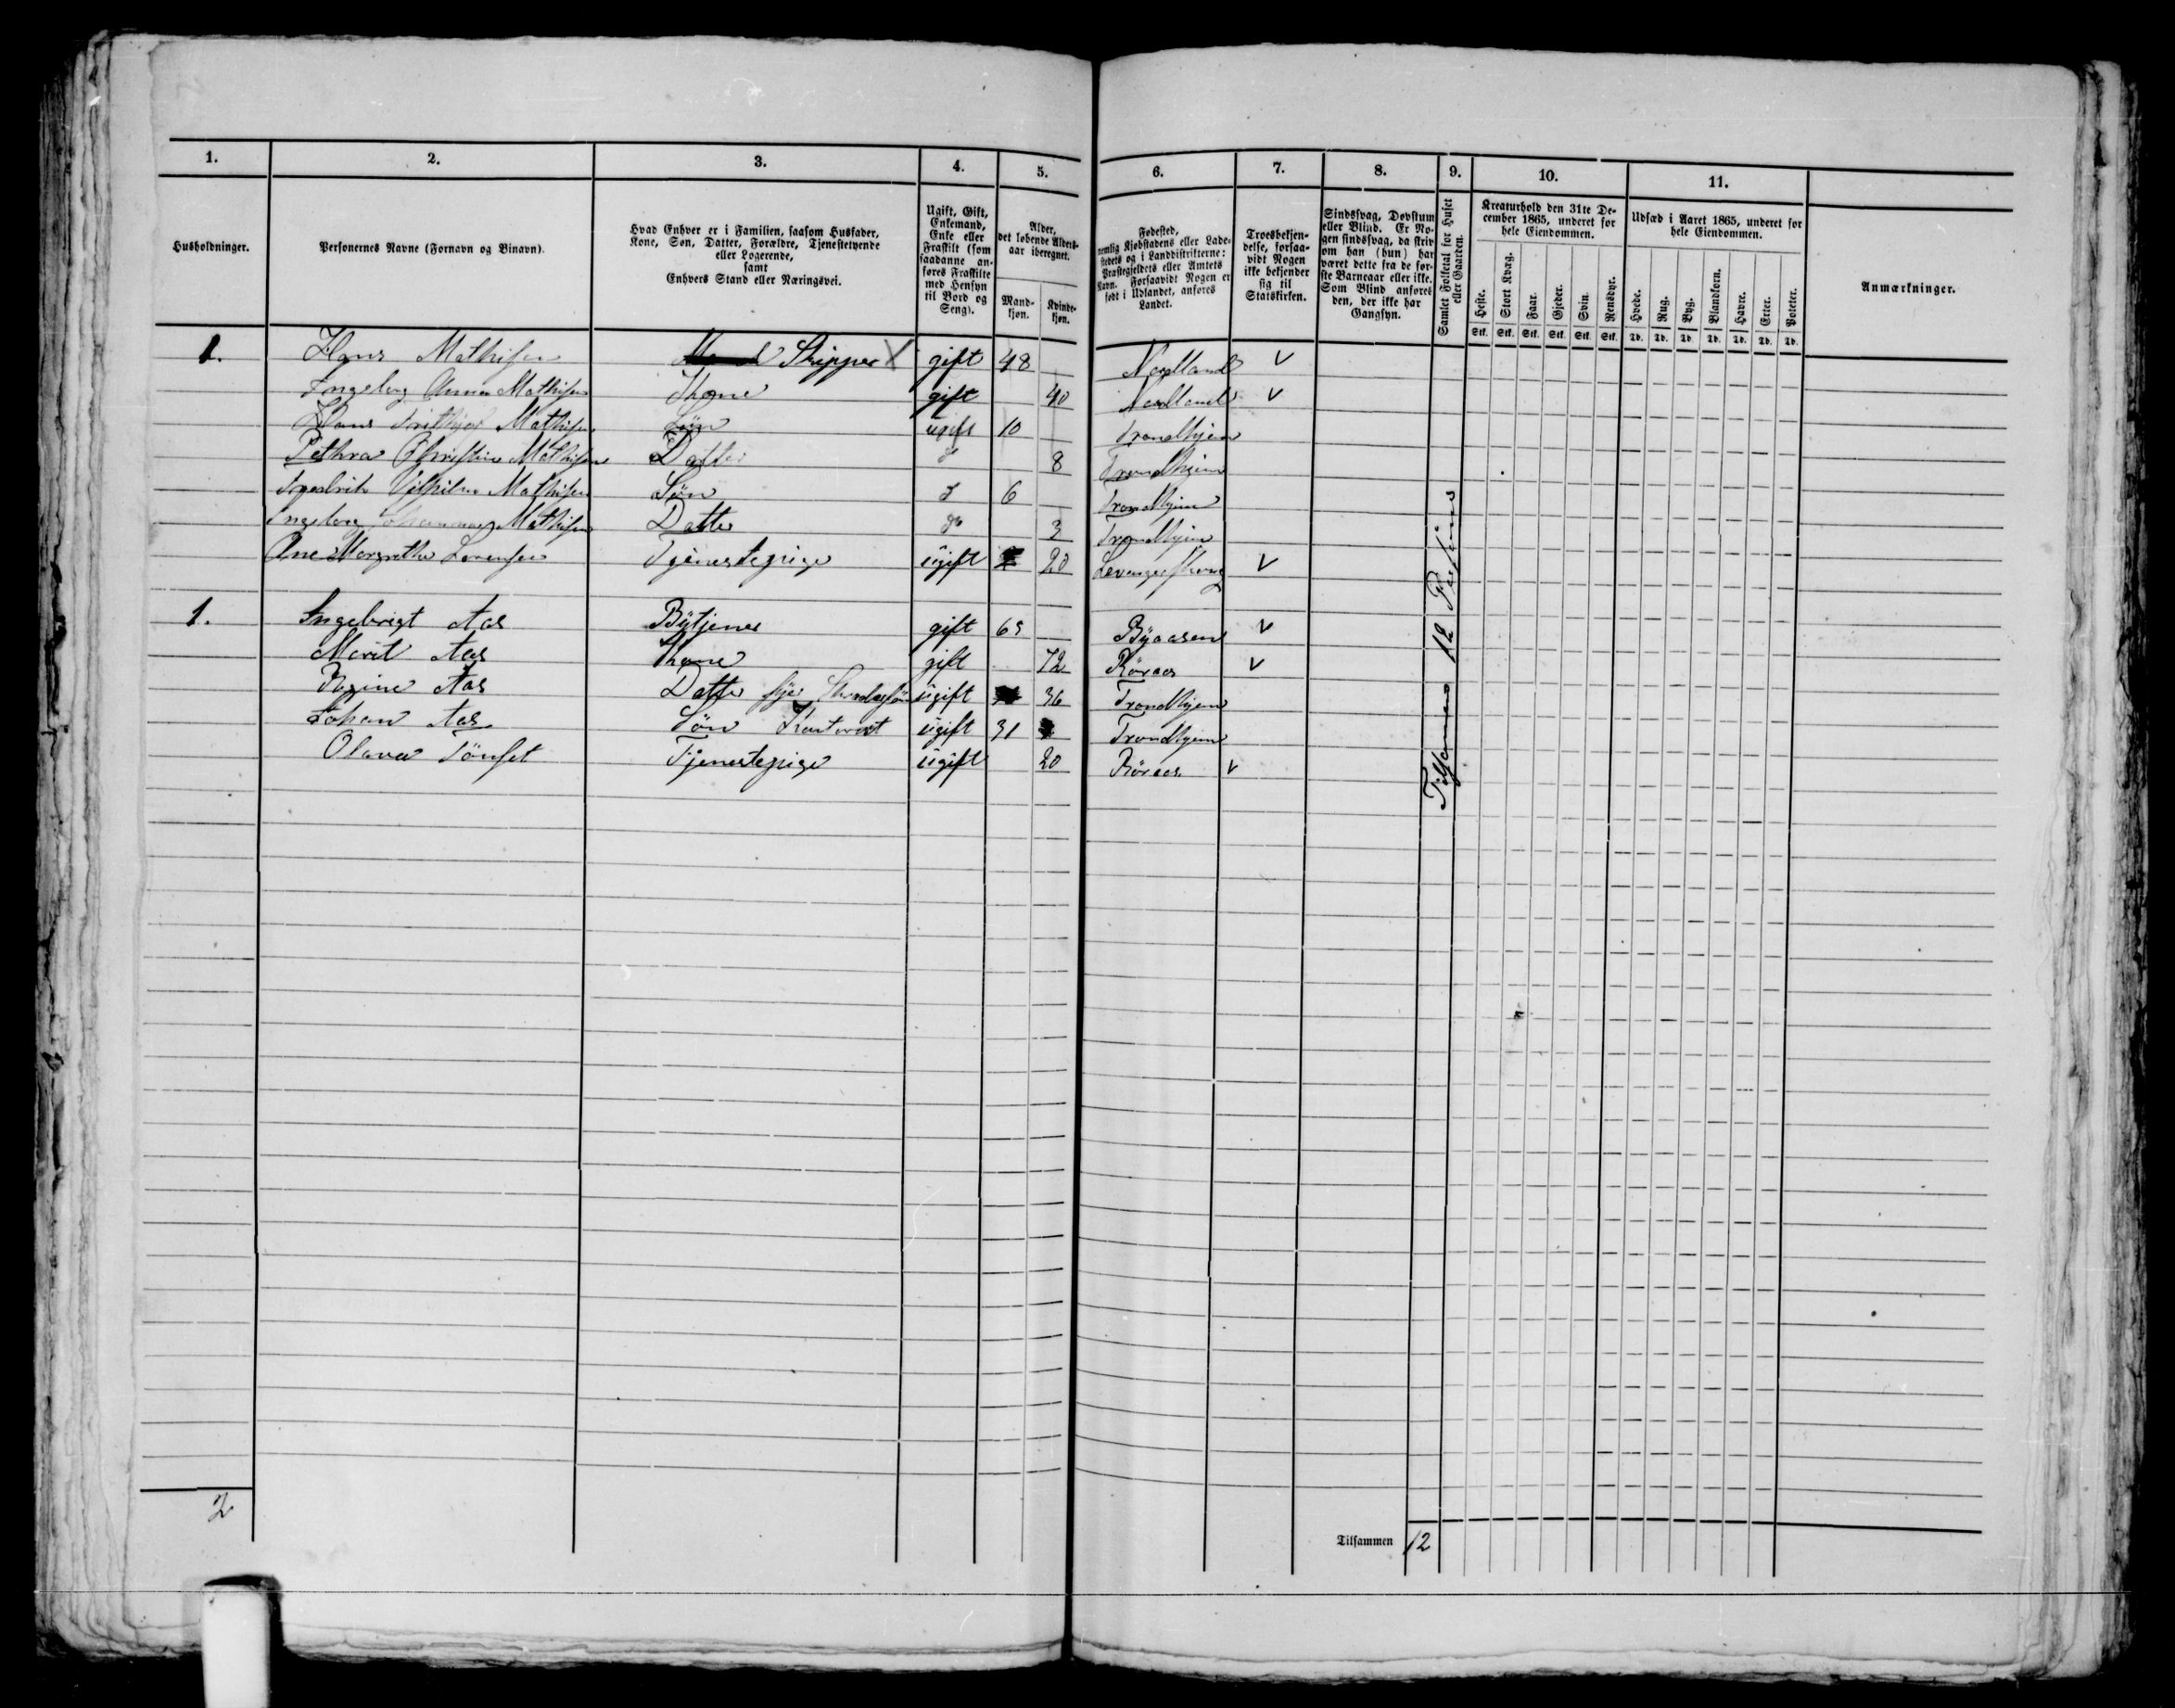 1. 2. 3. 4. 5. 6. 7. 8. 9. 10. 11.
Husholdninger.
Personernes Navne (Fornavn og Binavn).
Hvad Enhver er i Familien, saasom Husfader,
Kone, Søn, Datter, Forældre, Tjenestetyende
eller Logerende,
samt
Enhvers Stand eller Næringsvei.
Ugift, Gift,
Enkemand,
Enke eller
Fraskilt (som
saadanne an-
føres Fraskilte
med Hensyn
til Bord og
Seng).
Alder,
det løbende Alders-
aar iberegnet.
Mand-
kjøn.
Kvinde-
kjøn.
Fødested,
nemlig Kjøbstadens eller Lade-
stedets og i Landdistrikterne:
Præstegjeldets eller Amtets
Navn. Forsaavidt Nogen er
født i Udlandet, anføres
Landet.
Troesbekjen-
delse, forsaa-
vidt Nogen
ikke bekjender
sig til
Statskirken.
Sindssvag, Døvstum
eller Blind. Er No-
gen sindssvag, da skriv
om han (hun) har
været dette fra de før-
ste Barneaar eller ikke.
Som Blind anføres
den, der ikke har
Gangsyn.
Samlet Folketal for Huset
eller Gaarden.
Kreaturhold den 31te De-
cember 1865, underet for
hele Eiendommen.
Heste. Stort Kvæg. Faar. Gjeder. Svin. Rensdyr.
Stk. Stk. Stk. Stk. Stk. Stk.
Udsæd i Aaret 1865, underet for
hele Eiendommen.
Hvede. Rug. Byg. Blandkorn. Havre. Erter. Poteter.
Td. Td. Td. Td. Td. Td. Td.
Anmærkninger.
1. Hans Mathisen Skipper gift 48 Nordland v
Ingeborg Anna Mathisen Khone gift 40 Nordland v
Hans Frithjof Mathisen Søn ugift 10 Trondhjem
Pethra Christine Mathisen Datter 8 Trondhjem
Fredrik Vilhilm Mathisen Søn 6 Trondhjem
Ingeborg Johanna Mathisen Datter 3 Trondhjem
Ane Margrethe Lorensen Tjenestepige ugift 20 v
1. Ingebrigt Aas Bytjener gift 65 Byaasen v
Marit Aas Khone gift 72 Röraas v
Regine Aas Datter ugift 36 Trondhjem
Johan Aas Søn ugift 31 Trondhjem
Olava Tönset Tjenestepige ugift 20 Röraas v
Tilsammen 12
2
Tilsammen 12